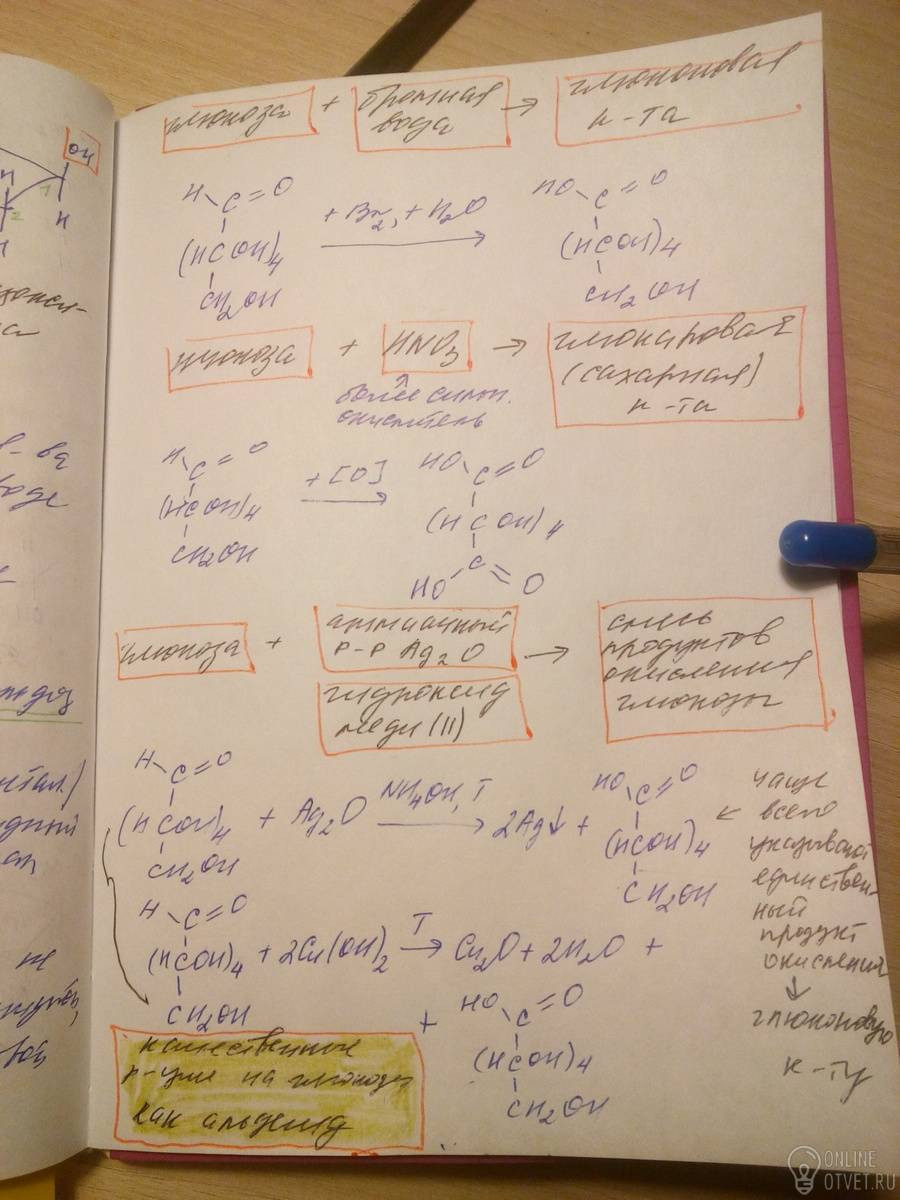 глюкоза + бромная вода → глюконовая к-та
H C=O
(HCOH)4
CH2OH
+Br2, +H2O →
HO C=O
(HCOH)4
CH2OH
глюкоза + HNO3 → глюкаровая (сахарная) к-та
более сильн.
окислитель
H C=O
(HCOH)4
CH2OH
+[O] →
HO C=O
(HCOH)4
HO C=O
глюкоза + аммиачный р-р Ag2O
гидроксид меди (II)
→ смесь
продуктов
окисления
глюкозы
H C=O
(HCOH)4
CH2OH
+ Ag2O NH4OH, T → 2Ag↓ +
HO C=O
(HCOH)4
CH2OH
чаще
всего
указывают
единствен-
ный
продукт
окисления
↓
глюконовую
к-ту
H C=O
(HCOH)4
CH2OH
+ 2Cu(OH)2 T → Cu2O + 2H2O +
+
HO C=O
(HCOH)4
CH2OH
качественные
р-ции на глюкозу
как альдегид
OH
H
1
2
H
H
в-ва
воде
не
ONLINE
OTVET.RU